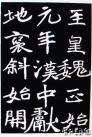 至皇魏正始
元年漢中獻
地褒斜始開